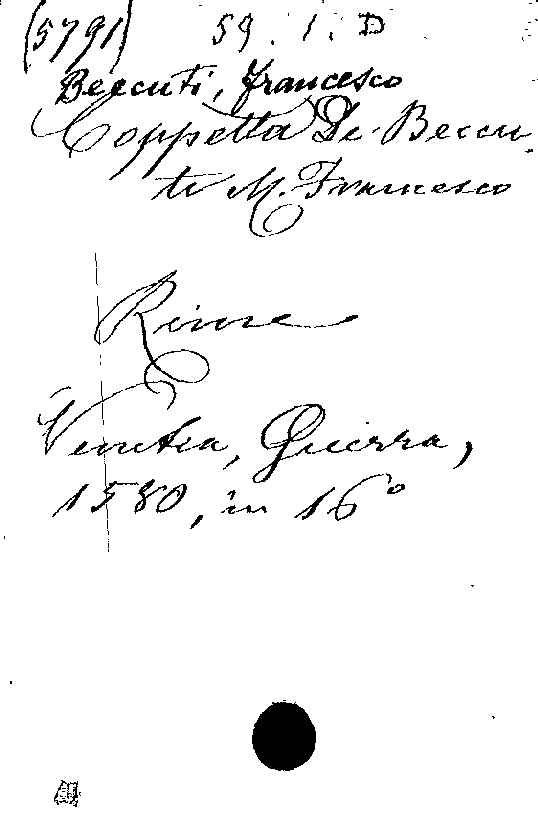 (5791) 59.1.D
Beccuti, Francesco
Coppetta De Beccu-
ti M. Francesco
Rime
Venetia, Guerra,
1580, in 16°